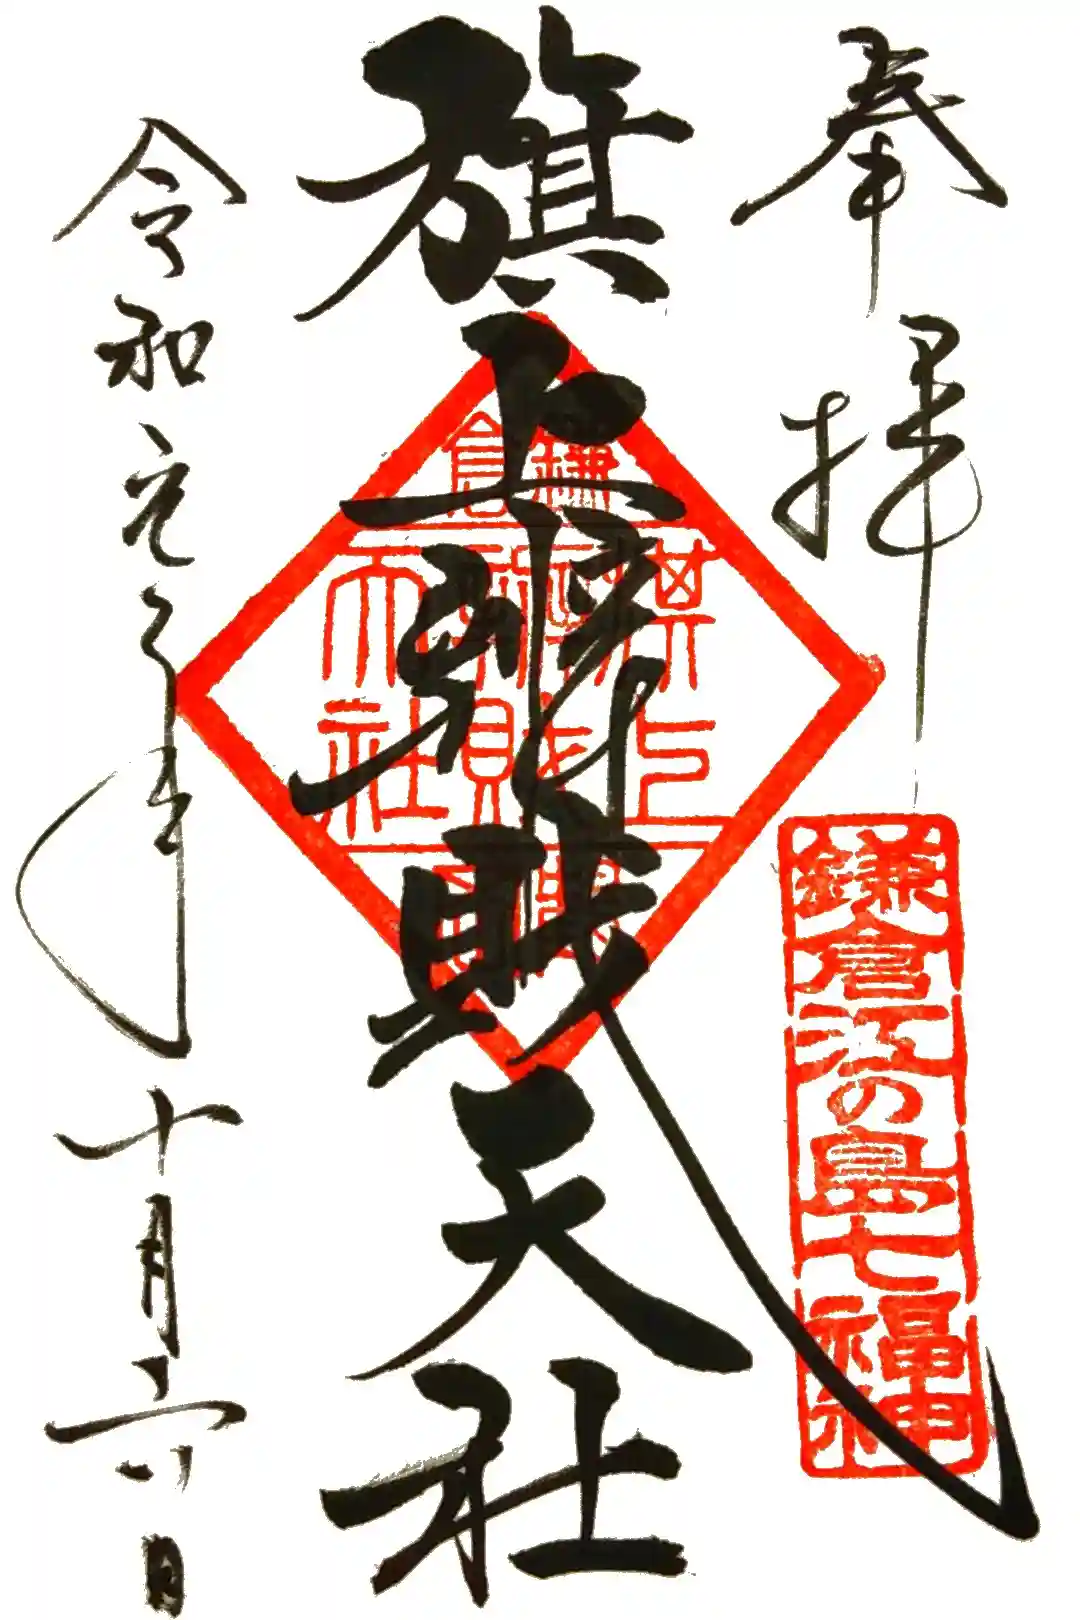 奉拝
鎌倉江の島七福神
旗上辨財天社
鎌倉
旗上
辨財
天社
令和元年十月六日